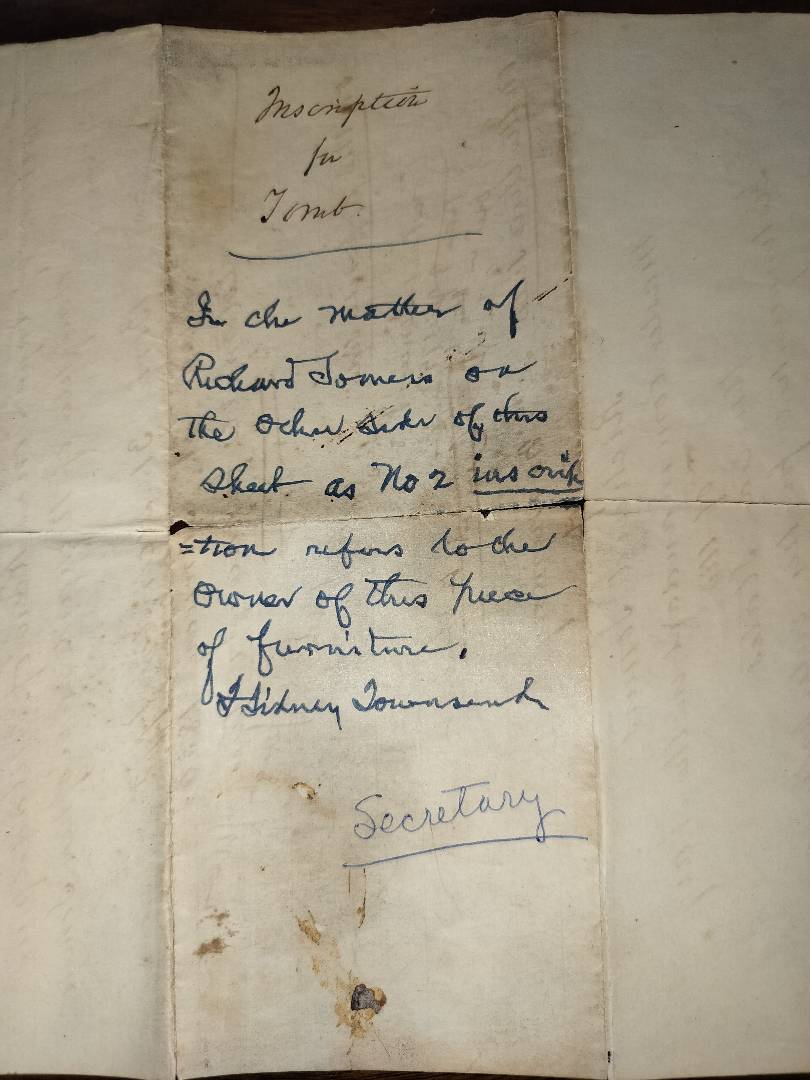 Inscription
for
Tomb.
In the matter of
Richard Somers on
the other side of this
sheet as No 2 inscrip
=tion refers to the
owner of this piece
of furniture.
J Sidney Townsend
Secretary